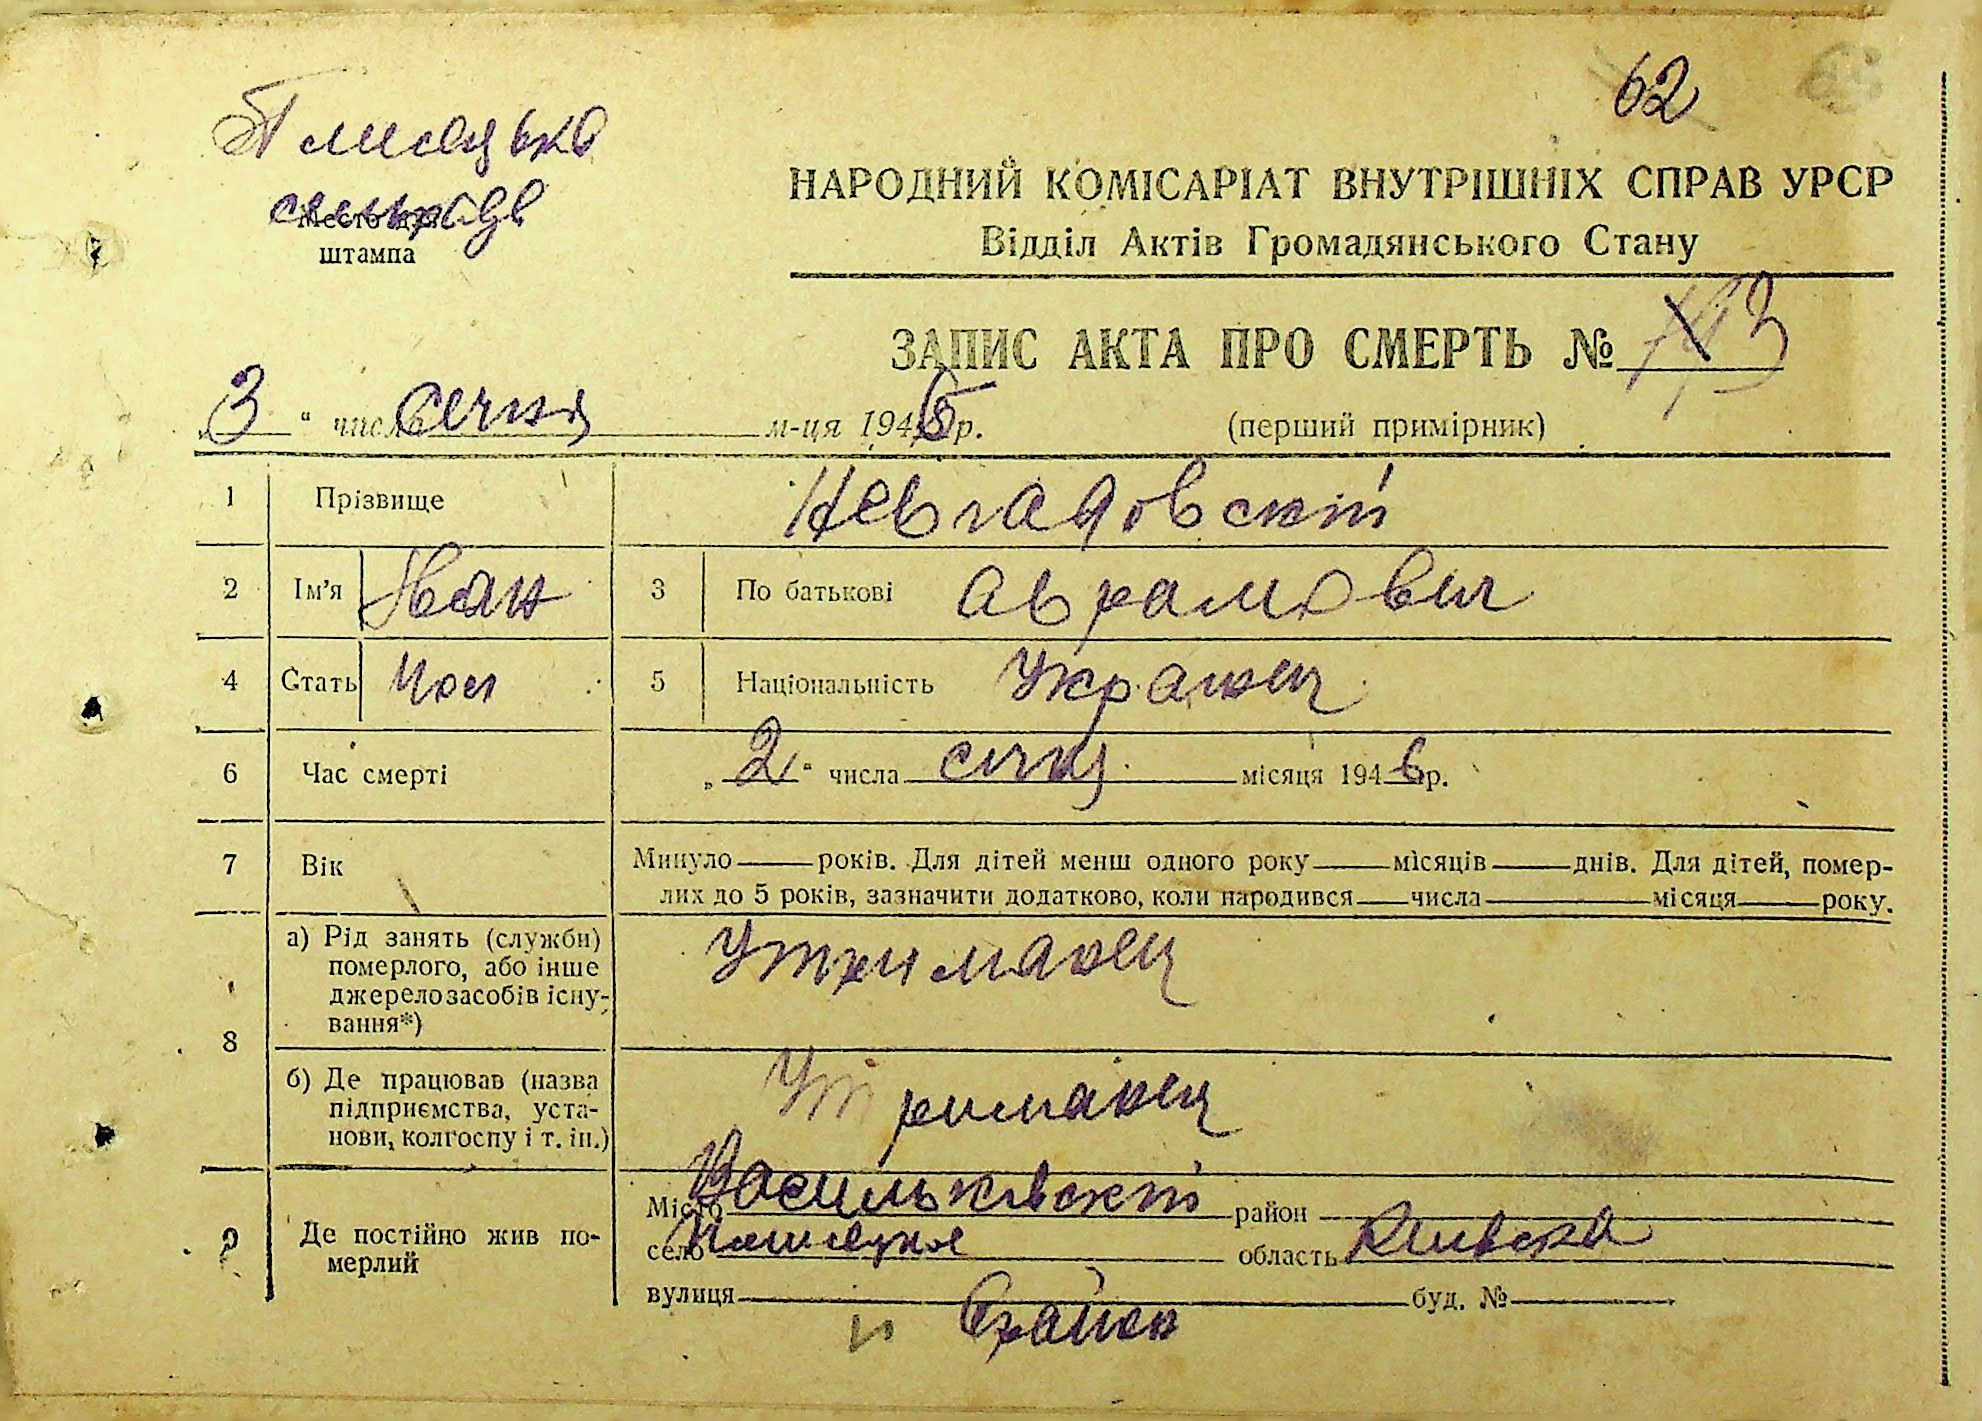 62
Плисецька
сельрада
Место для
штампа
НАРОДНИЙ КОМІСАРІАТ ВНУТРІШНІХ СПРАВ УРСР
Відділ Актів Громадянського Стану
ЗАПИС АКТА ПРО СМЕРТЬ № 3
„3“ числа січня м-ця 1946 р. (перший примірник)
1 Прізвище Невгадовский
2 Ім'я Иван 3 По батькові Аврамович
4 Стать Чол 5 Національність Українец
6 Час смерті „2“ числа січня місяця 1946 р.
7 Вік Минуло років. Для дітей менш одного року місяців днів. Для дітей, помер-
лих до 5 років, зазначити додатково, коли народився числа місяця року.
8 а) Рід занять (служби)
померлого, або інше
джерело засобів існу-
вання*)
Утриманец
б) Де працював (назва
підприємства, уста-
нови, колгоспу і т. ін.)
Утриманец
9 Де постійно жив по-
мерлий
Місто Васильківский район
село Плисецкое область Київска
вулиця буд. №